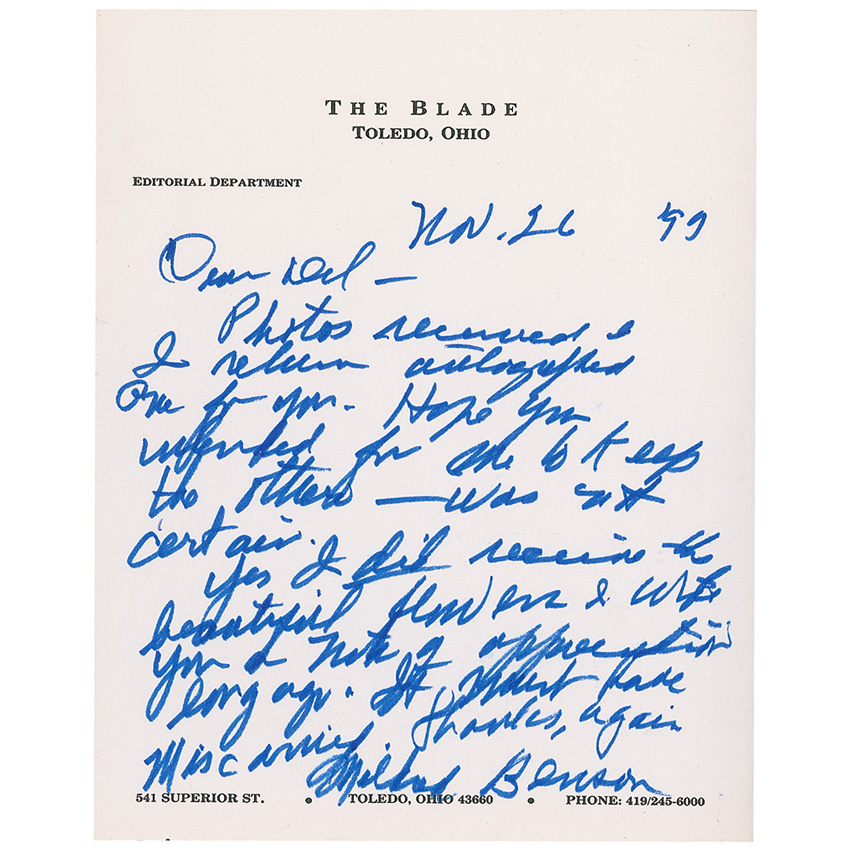 THE BLADE
TOLEDO, OHIO
EDITORIAL DEPARTMENT
Nov. 26 '99
Dear Del —
Photos received &
I return autographed
one for you. Hope you
intended for me to keep
the others — was not
certain.
Yes I did receive the
beautiful flowers & wrote
you a note of appreciation
long ago. It must have
miscarried
Thanks, again
Mildred Benson
541 SUPERIOR ST. • TOLEDO, OHIO 43660 • PHONE: 419/245-6000